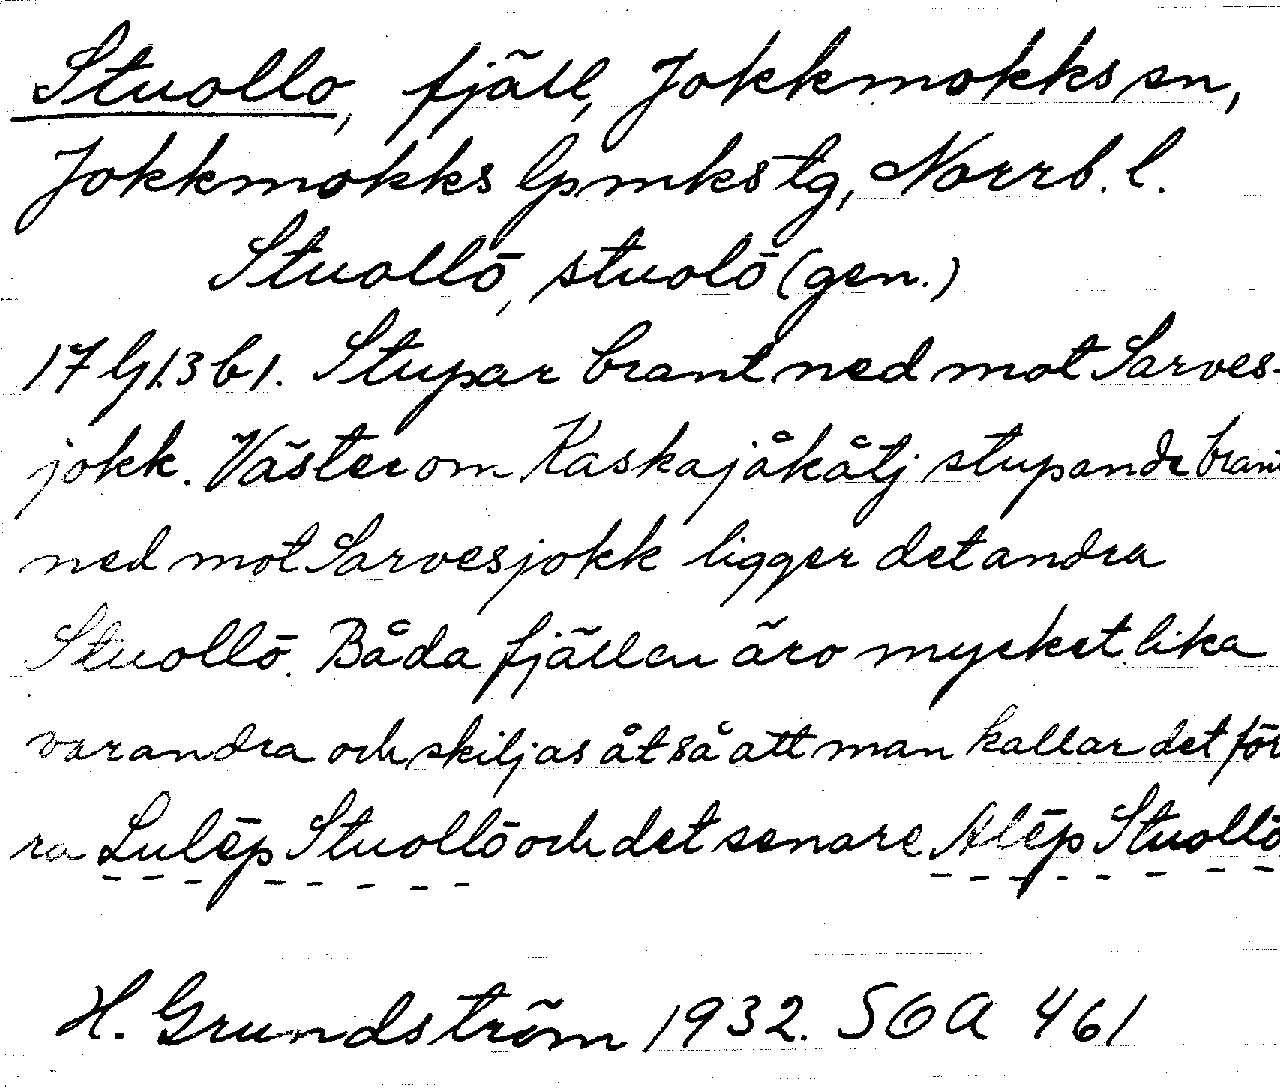 Stuollo, fjäll, Jokkmokks sn,
Jokkmokks lpmks tg, Norrb. l.
Stuollō, stuolō (gen.)
17 G 13 b 1. Stupar brant ned mot Sarves-
jokk. Väster om Kaskajåkåtj stupande brant
ned mot Sarvesjokk ligger det andra
Stuollō. Båda fjällen äro mycket lika
varandra och skiljas åt så att man kallar det för
ra Lulēp Stuollō och det senare Alēp Stuollō
H. Grundström 1932. SOA 461